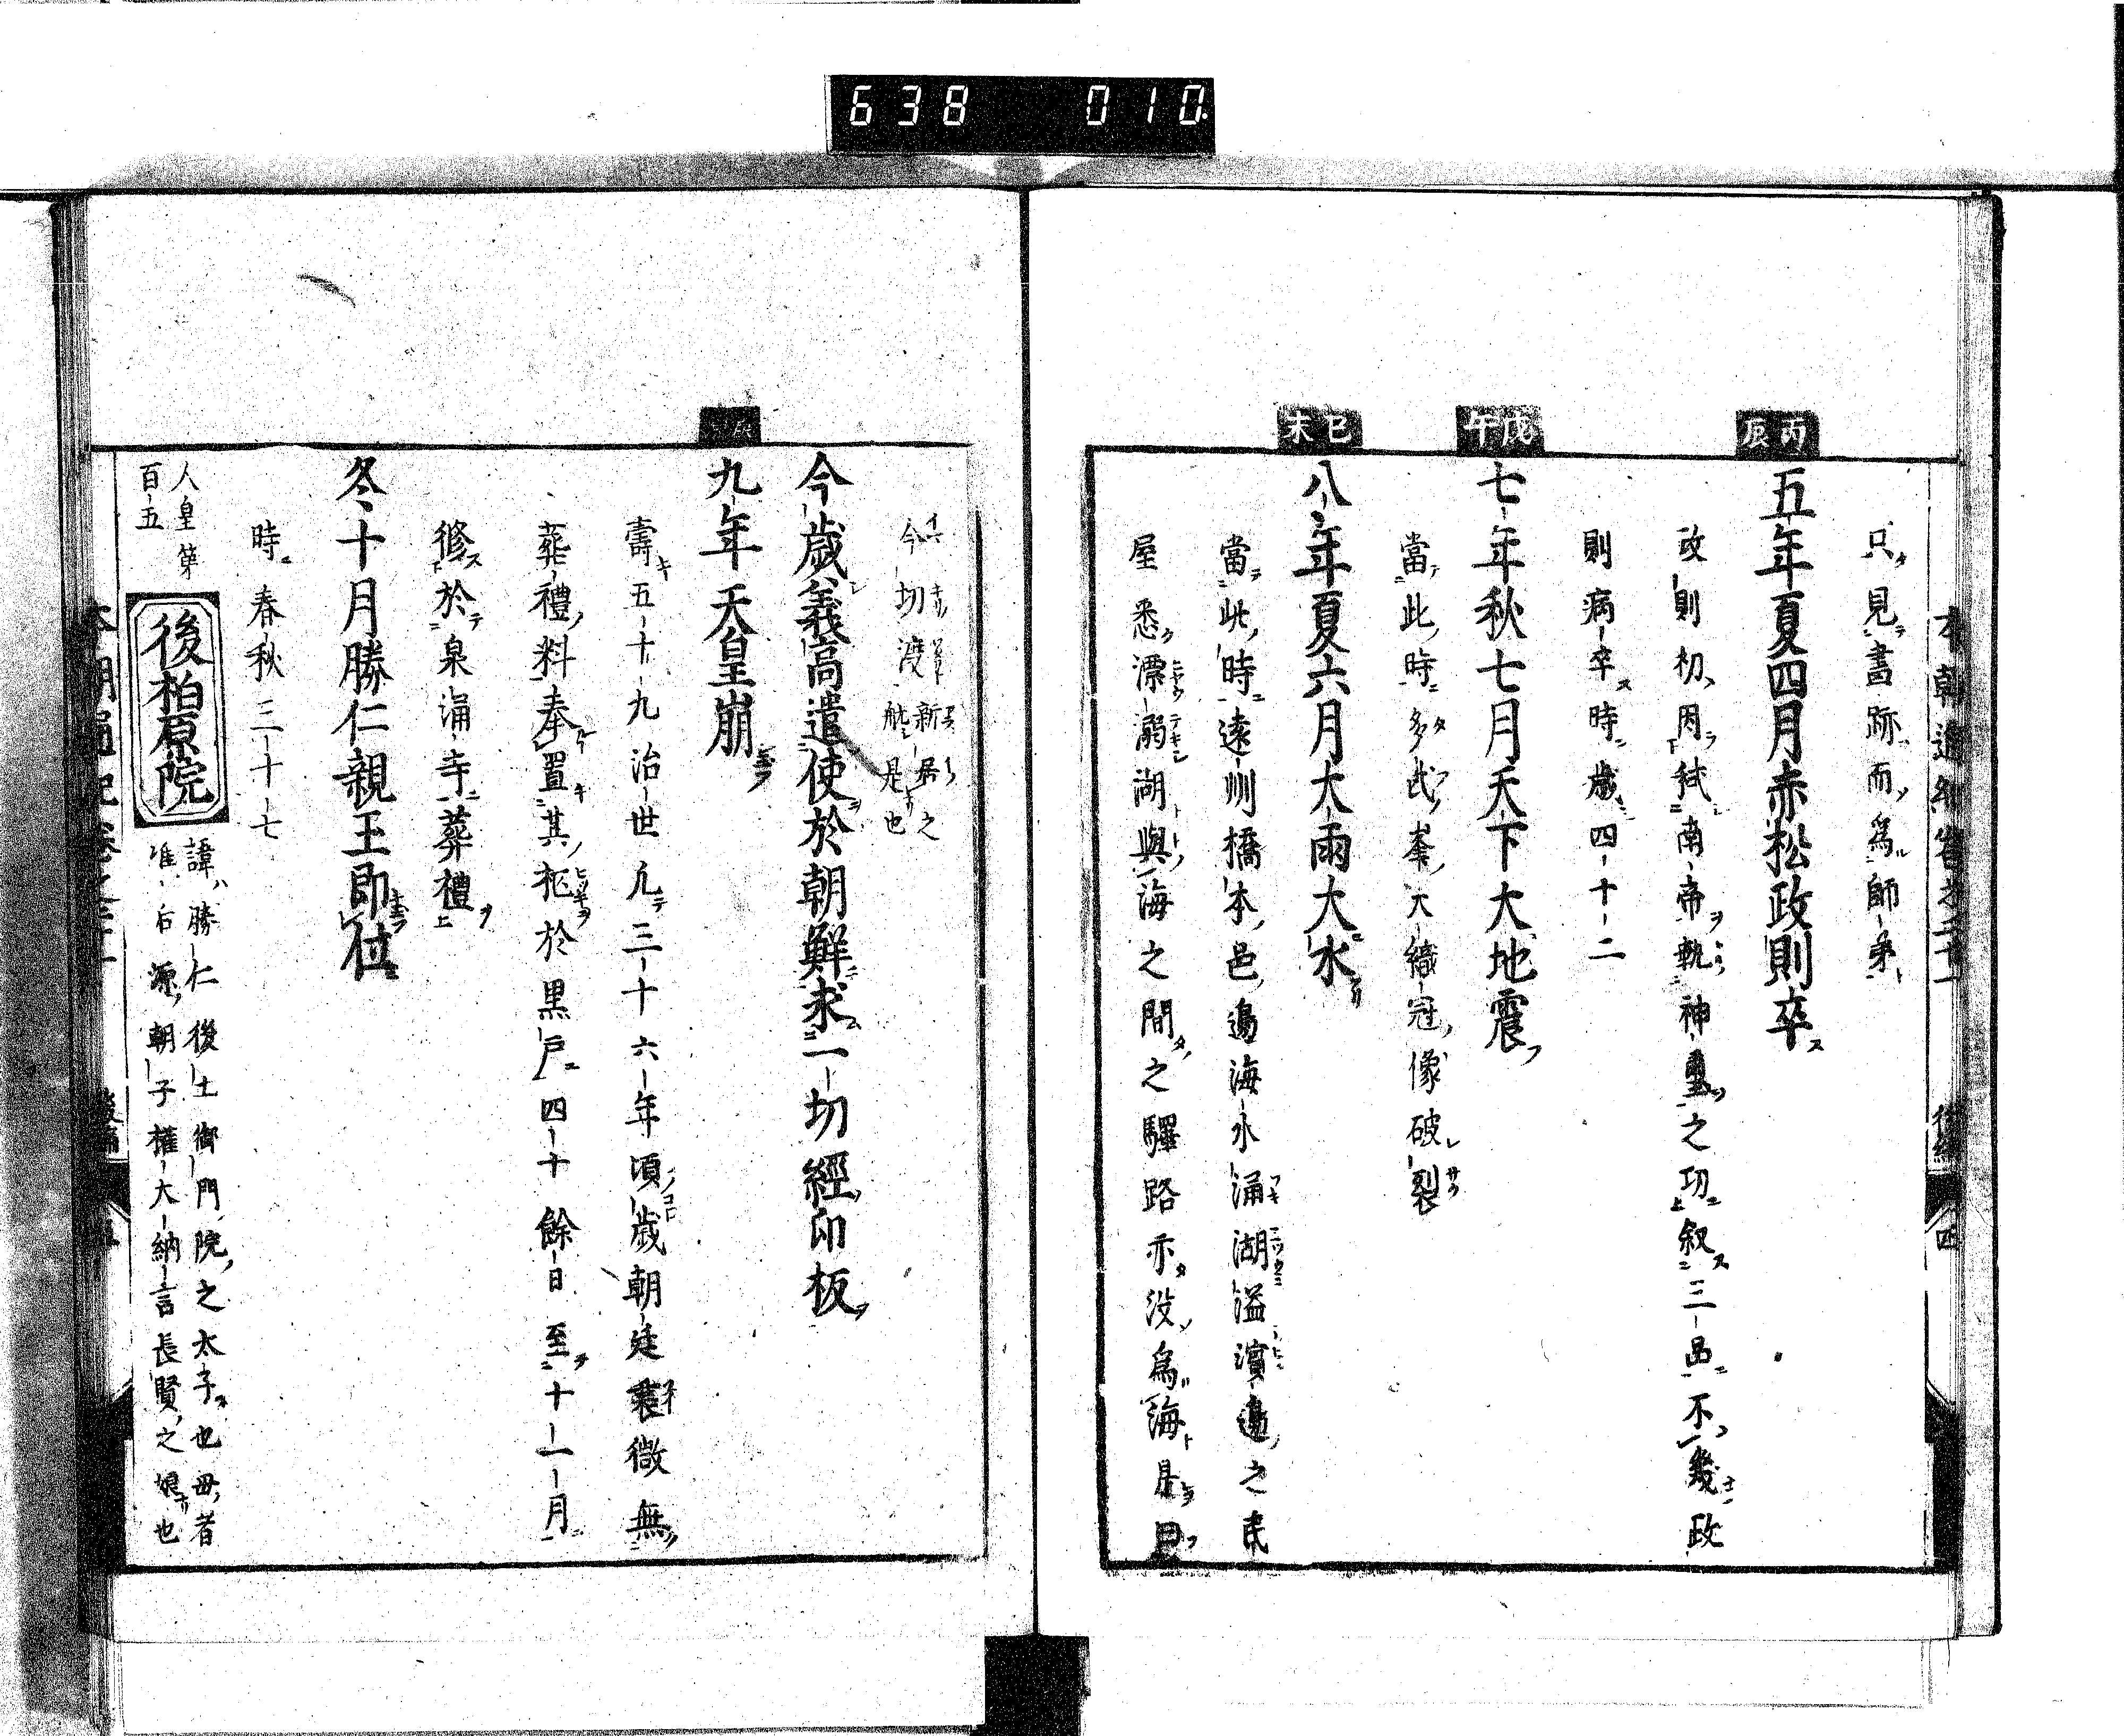 638 010
本朝通紀卷之二十一 後編 四
只見書跡而爲師弟
丙辰
五年夏四月赤松政則卒
政則初因弑南帝執神璽之功叙三品不幾政
則病卒時歳四十二
戊午
七年秋七月天下大地震
當此時多武峯大織冠像破裂
巳未
八年夏六月大雨大水
當此時遠州橋本邑邉海水涌湖溢濱邉之民
屋悉漂溺湖與海之間之驛路亦没爲海是曰
今切渡新居之
是也
今歳義高遣使於朝鮮求一切經印板
九年天皇崩
壽五十九治世凡三十六年頃歳朝廷衰微無
葬禮料奉置其柩於黒戸四十餘日至十一月
修於泉涌寺葬禮
冬十月勝仁親王即位
時春秋三十七
人皇第
百五
後柏原院
諱勝仁後土御門院之太子也母者
准后源朝子權大納言長賢之娘也
本朝通紀卷之二十一 後編